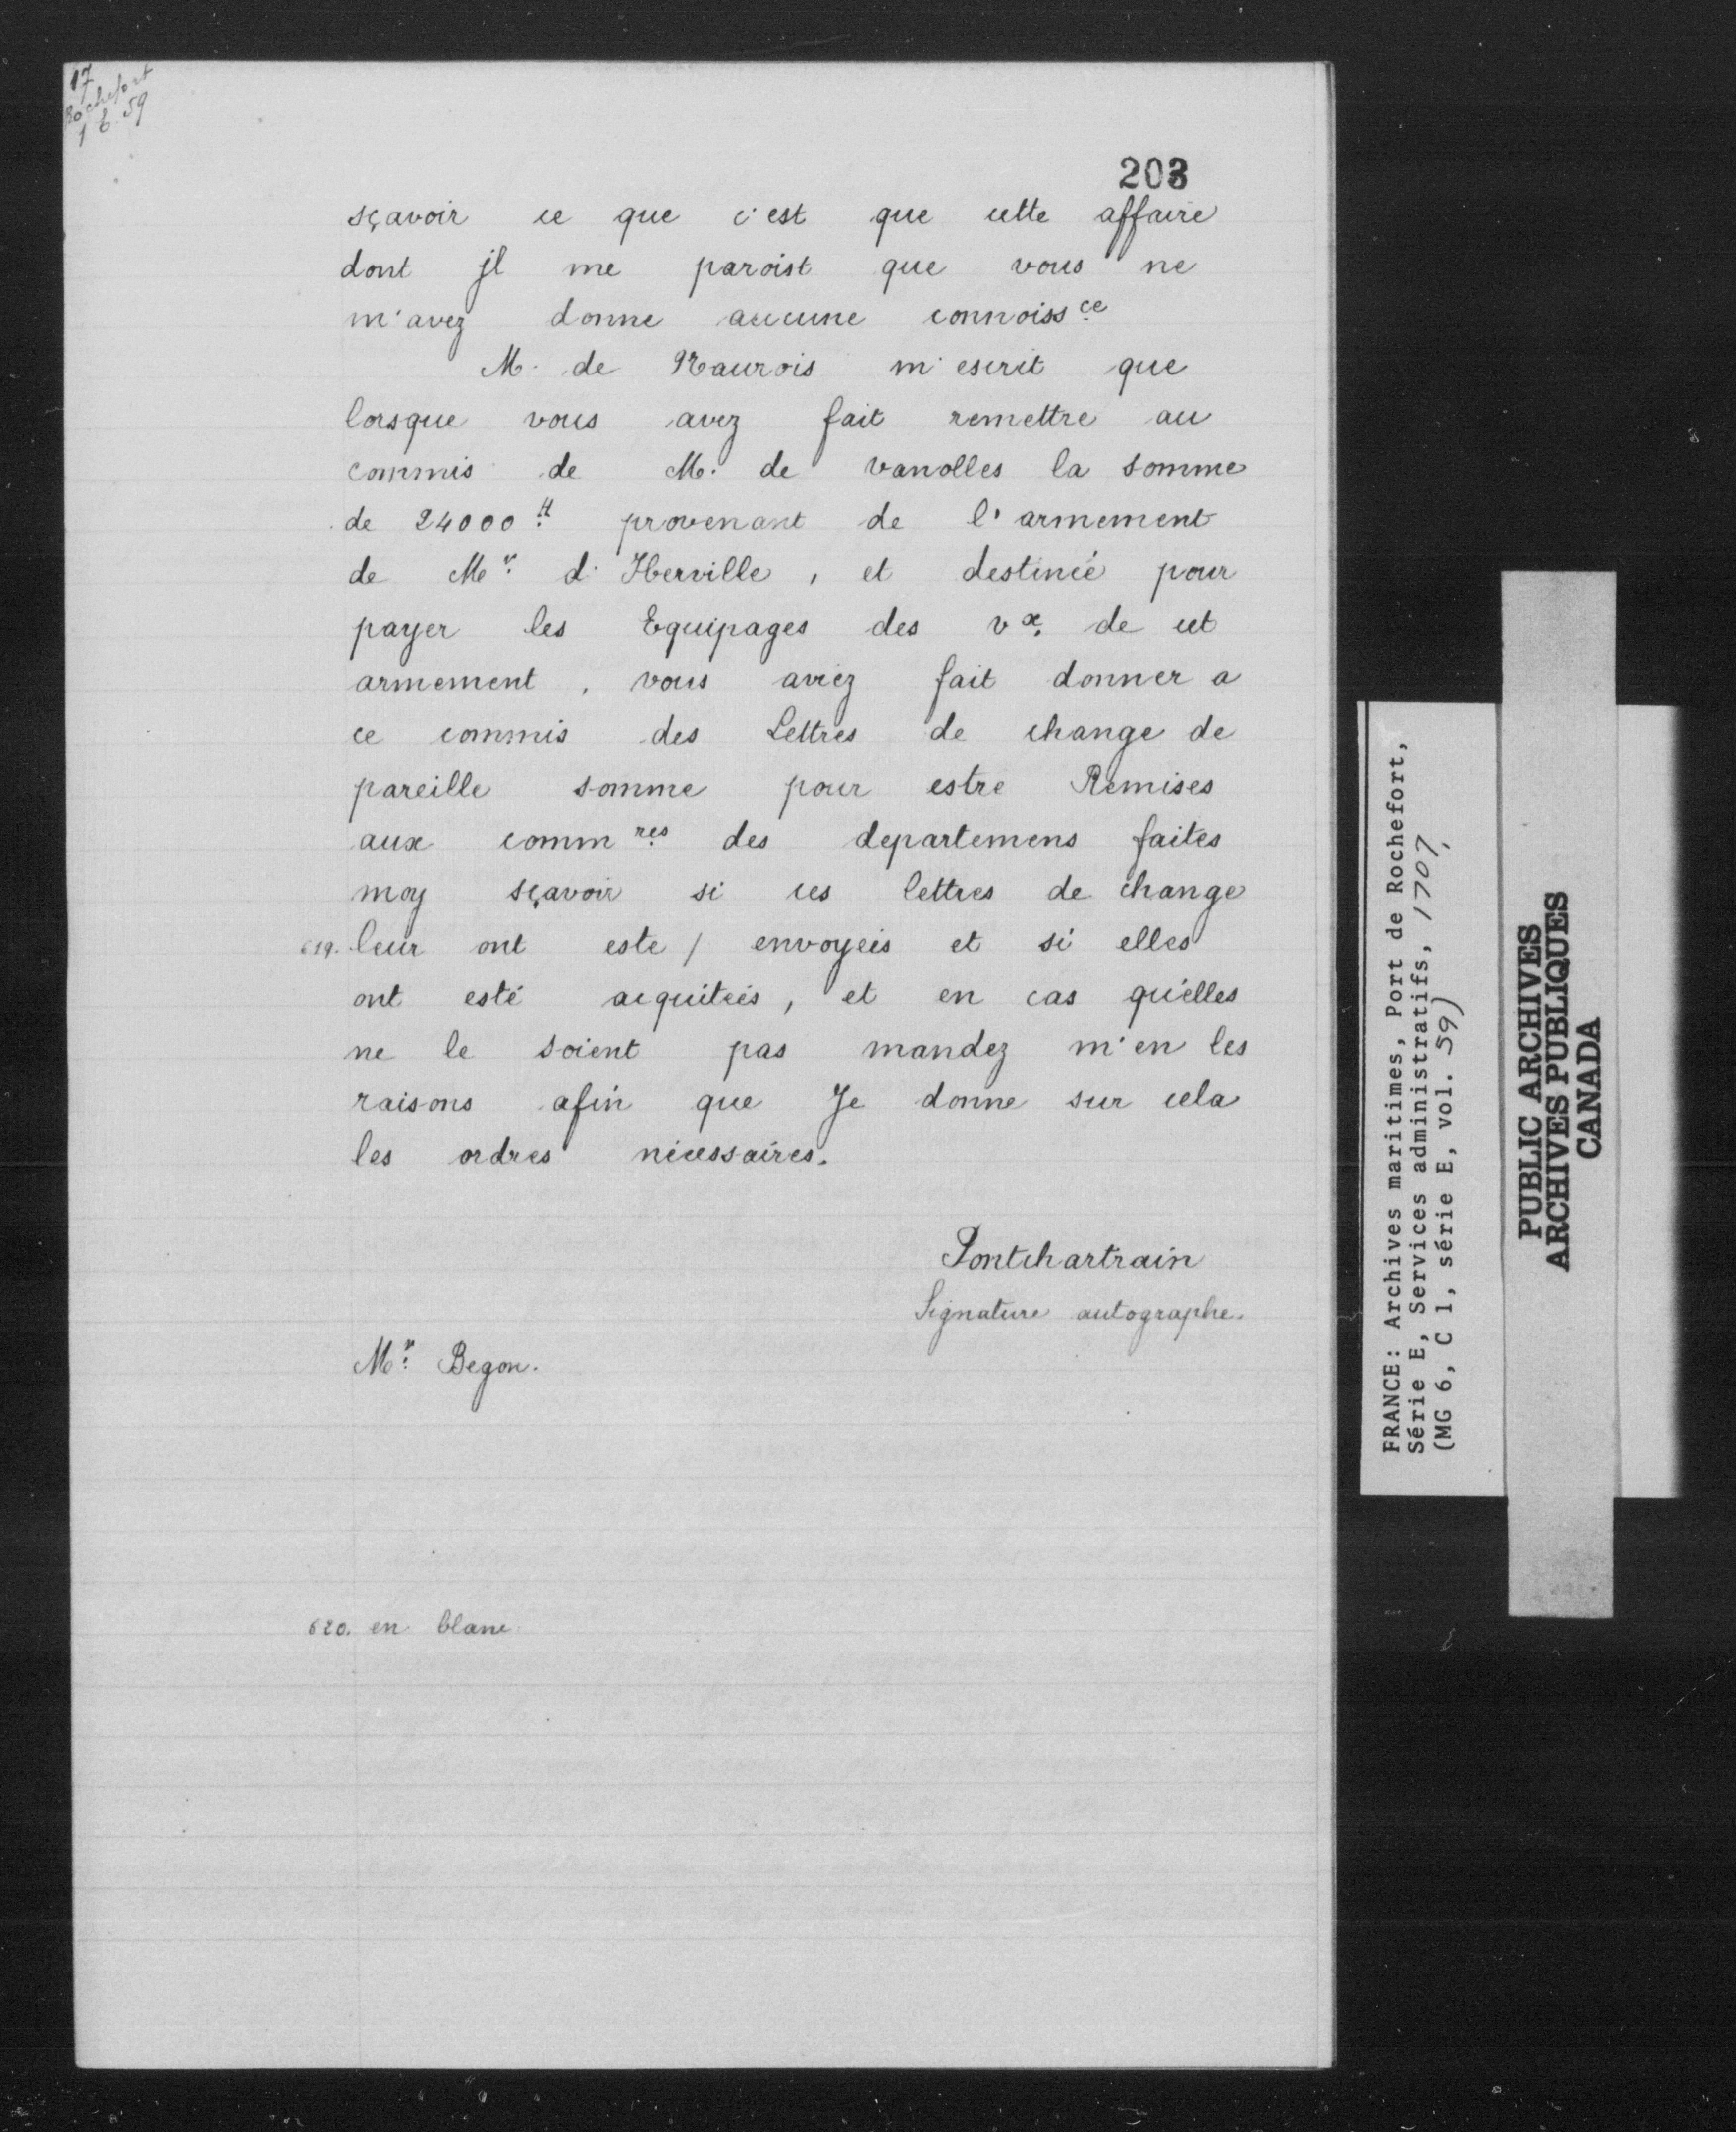 17
Rochefort
1 E. 59
203
sçavoir ce que c'est que cette affaire
dont jl me paroist que vous ne
m'avez donne aucune connoiss.ce
M. de Naurois m'escrit que
lorsque vous avez fait remettre au
commis de M. de vanolles la somme
de 24000 ₶ provenant de l'armement
de Mr. d'Iberville, et destinée pour
payer les Equipages des vx. de cet
armement, vous aviez fait donner a
ce commis des Lettres de change de
pareille somme pour estre Remises
aux comm.res des departemens faites
moy sçavoir si ces lettres de change
619. leur ont este / envoyeés et si elles
ont esté acquitées, et en cas qu'elles
ne le soient pas mandez m'en les
raisons afin que Je donne sur cela
les ordres nécessaires.
Pontchartrain
Signature autographe.
Mr. Begon.
620. en blanc
FRANCE: Archives maritimes, Port de Rochefort,
Série E, Services administratifs, 1707,
(MG 6, C 1, série E, vol. 59)
PUBLIC ARCHIVES
ARCHIVES PUBLIQUES
CANADA